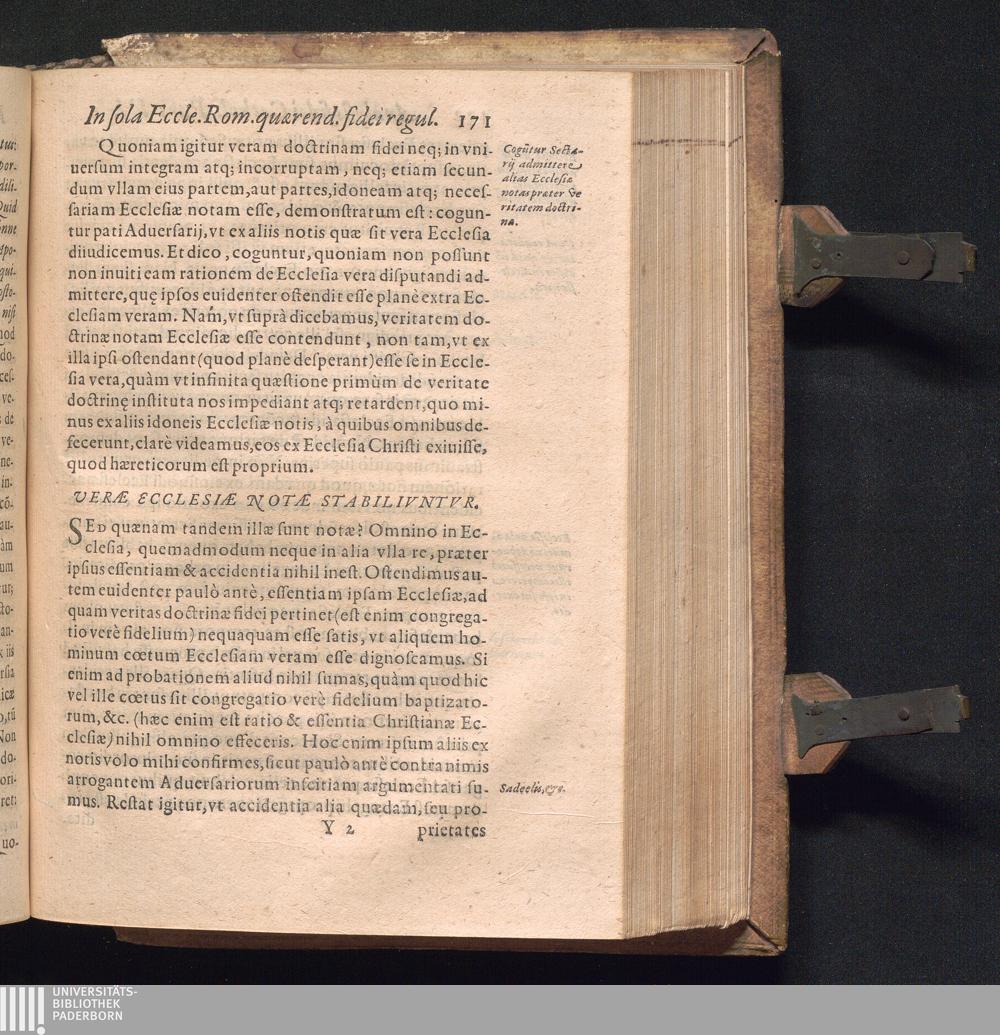 In ſola Eccle. Rom. quærend. fidei regul. 171
Quoniam igitur veram doctrinam fidei neq; in vni-
uerſum integram atq; incorruptam, neq; etiam ſecun-
dum vllam eius partem, aut partes, idoneam atq; neceſ-
ſariam Eccleſiæ notam eſſe, demonſtratum eſt: cogun-
tur pati Aduerſarij, vt ex aliis notis quæ ſit vera Eccleſia
diiudicemus. Et dico, coguntur, quoniam non poſſunt
non inuiti eam rationem de Eccleſia vera diſputandi ad-
mittere, quę ipſos euidenter oſtendit eſſe planè extra Ec-
cleſiam veram. Nam, vt ſuprà dicebamus, veritatem do-
ctrinæ notam Eccleſiæ eſſe contendunt, non tam, vt ex
illa ipſi oſtendant (quod planè deſperant) eſſe ſe in Eccle-
ſia vera, quàm vt infinita quæſtione primùm de veritate
doctrinę inſtituta nos impediant atq; retardent, quo mi-
nus ex aliis idoneis Eccleſiæ notis, à quibus omnibus de-
fecerunt, clarè videamus, eos ex Eccleſia Chriſti exiuiſſe,
quod hæreticorum eſt proprium.
VERÆ ECCLESIÆ NOTÆ STABILIVNTVR.
SED quænam tandem illæ ſunt notæ? Omnino in Ec-
cleſia, quemadmodum neque in alia vlla re, præter
ipſius eſſentiam & accidentia nihil ineſt. Oſtendimus au-
tem euidenter paulò antè, eſſentiam ipſam Eccleſiæ, ad
quam veritas doctrinæ fidei pertinet (eſt enim congrega-
tio verè fidelium) nequaquam eſſe ſatis, vt aliquem ho-
minum cœtum Eccleſiam veram eſſe dignoſcamus. Si
enim ad probationem aliud nihil ſumas, quàm quod hic
vel ille cœtus ſit congregatio verè fidelium baptizato-
rum, &c. (hæc enim eſt ratio & eſſentia Chriſtianæ Ec-
cleſiæ) nihil omnino effeceris. Hoc enim ipſum aliis ex
notis volo mihi confirmes, ſicut paulò antè contra nimis
arrogantem Aduerſariorum inſcitiam argumentati ſu-
mus. Reſtat igitur, vt accidentia alia quædam, ſeu pro-
Y 2 prietates
Cogūtur Secta-
rij admittere
alias Eccleſiæ
notas præter ve
ritatem doctri-
næ.
Sadeelis, 178.
UNIVERSITÄTS-
BIBLIOTHEK
PADERBORN